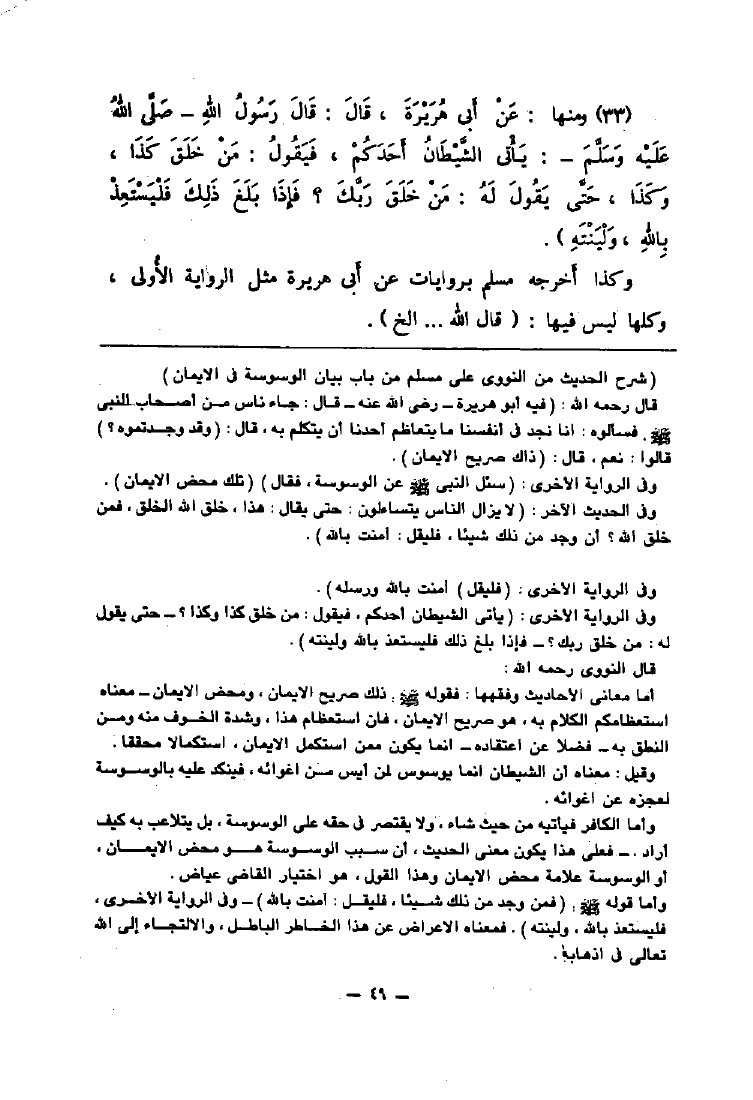 (٣٣) ومنها : عَنْ أَبِى هُرَيْرَةَ ، قَالَ : قَالَ رَسُولُ اللهِ – صَلَّى اللهُ
عَلَيْهِ وَسَلَّمَ – : يَأْتِى الشَّيْطَانُ أَحَدَكُمْ ، فَيَقُولُ : مَنْ خَلَقَ كَذَا ،
وَكَذَا ، حَتَّى يَقُولَ لَهُ : مَنْ خَلَقَ رَبَّكَ ؟ فَإِذَا بَلَغَ ذَلِكَ فَلْيَسْتَعِذْ
بِاللهِ ، وَلْيَنْتَهِ ) .
وكذا أَخرجه مسلم بروايات عن أَبى هريرة مثل الرواية الأُولى ،
وكلها ليس فيها : ( قال الله ... الخ ) .
( شرح الحديث من النووى على مسلم من باب بيان الوسوسة فى الايمان )
قال رحمه الله : ( فيه أبو هريرة – رضى الله عنه – قال : جاء ناس من أصحاب النبى
ﷺ . فسألوه : انا نجد فى أنفسنا ما يتعاظم أحدنا أن يتكلم به ، قال : ( وقد وجدتموه ؟ )
قالوا : نعم ، قال : ( ذاك صريح الايمان ) .
وفى الرواية الأخرى : ( سئل النبى ﷺ عن الوسوسة ، فقال ) ( تلك محض الايمان ) .
وفى الحديث الآخر : ( لا يزال الناس يتساءلون : حتى يقال : هذا ، خلق الله الخلق ، فمن
خلق الله ؟ أن وجد من ذلك شيئا ، فليقل : أمنت بالله ) .
وفى الرواية الأخرى : ( فليقل ) أمنت بالله ورسله ) .
وفى الرواية الأخرى : ( يأتى الشيطان أحدكم ، فيقول : من خلق كذا وكذا ؟ – حتى يقول
له : من خلق ربك ؟ – فإذا بلغ ذلك فليستعذ بالله ولينته ) .
قال النووى رحمه الله :
أما معانى الأحاديث وفقهها : فقوله ﷺ : ذلك صريح الايمان ، ومحض الايمان – معناه
استعظامكم الكلام به ، هو صريح الايمان ، فان استعظام هذا ، وشدة الخوف منه ومن
النطق به – فضلا عن اعتقاده – انما يكون ممن استكمل الايمان ، استكمالا محققا .
وقيل : معناه أن الشيطان انما يوسوس لمن أيس من اغوائه ، فينكد عليه بالوسوسة
لعجزه عن اغوائه .
وأما الكافر فيأتيه من حيث شاء ، ولا يقتصر فى حقه على الوسوسة ، بل يتلاعب به كيف
أراد . – فعلى هذا يكون معنى الحديث ، أن سبب الوسوسة هو محض الايمان ،
أو الوسوسة علامة محض الايمان وهذا القول ، هو اختيار القاضى عياض .
وأما قوله ﷺ : ( فمن وجد من ذلك شيئا ، فليقل : أمنت بالله ) – وفى الرواية الأخرى ،
فليستعذ بالله ، ولينته ) . فمعناه الاعراض عن هذا الخاطر الباطل ، والالتجاء إلى الله
تعالى فى اذهابه .
– ٤٩ –